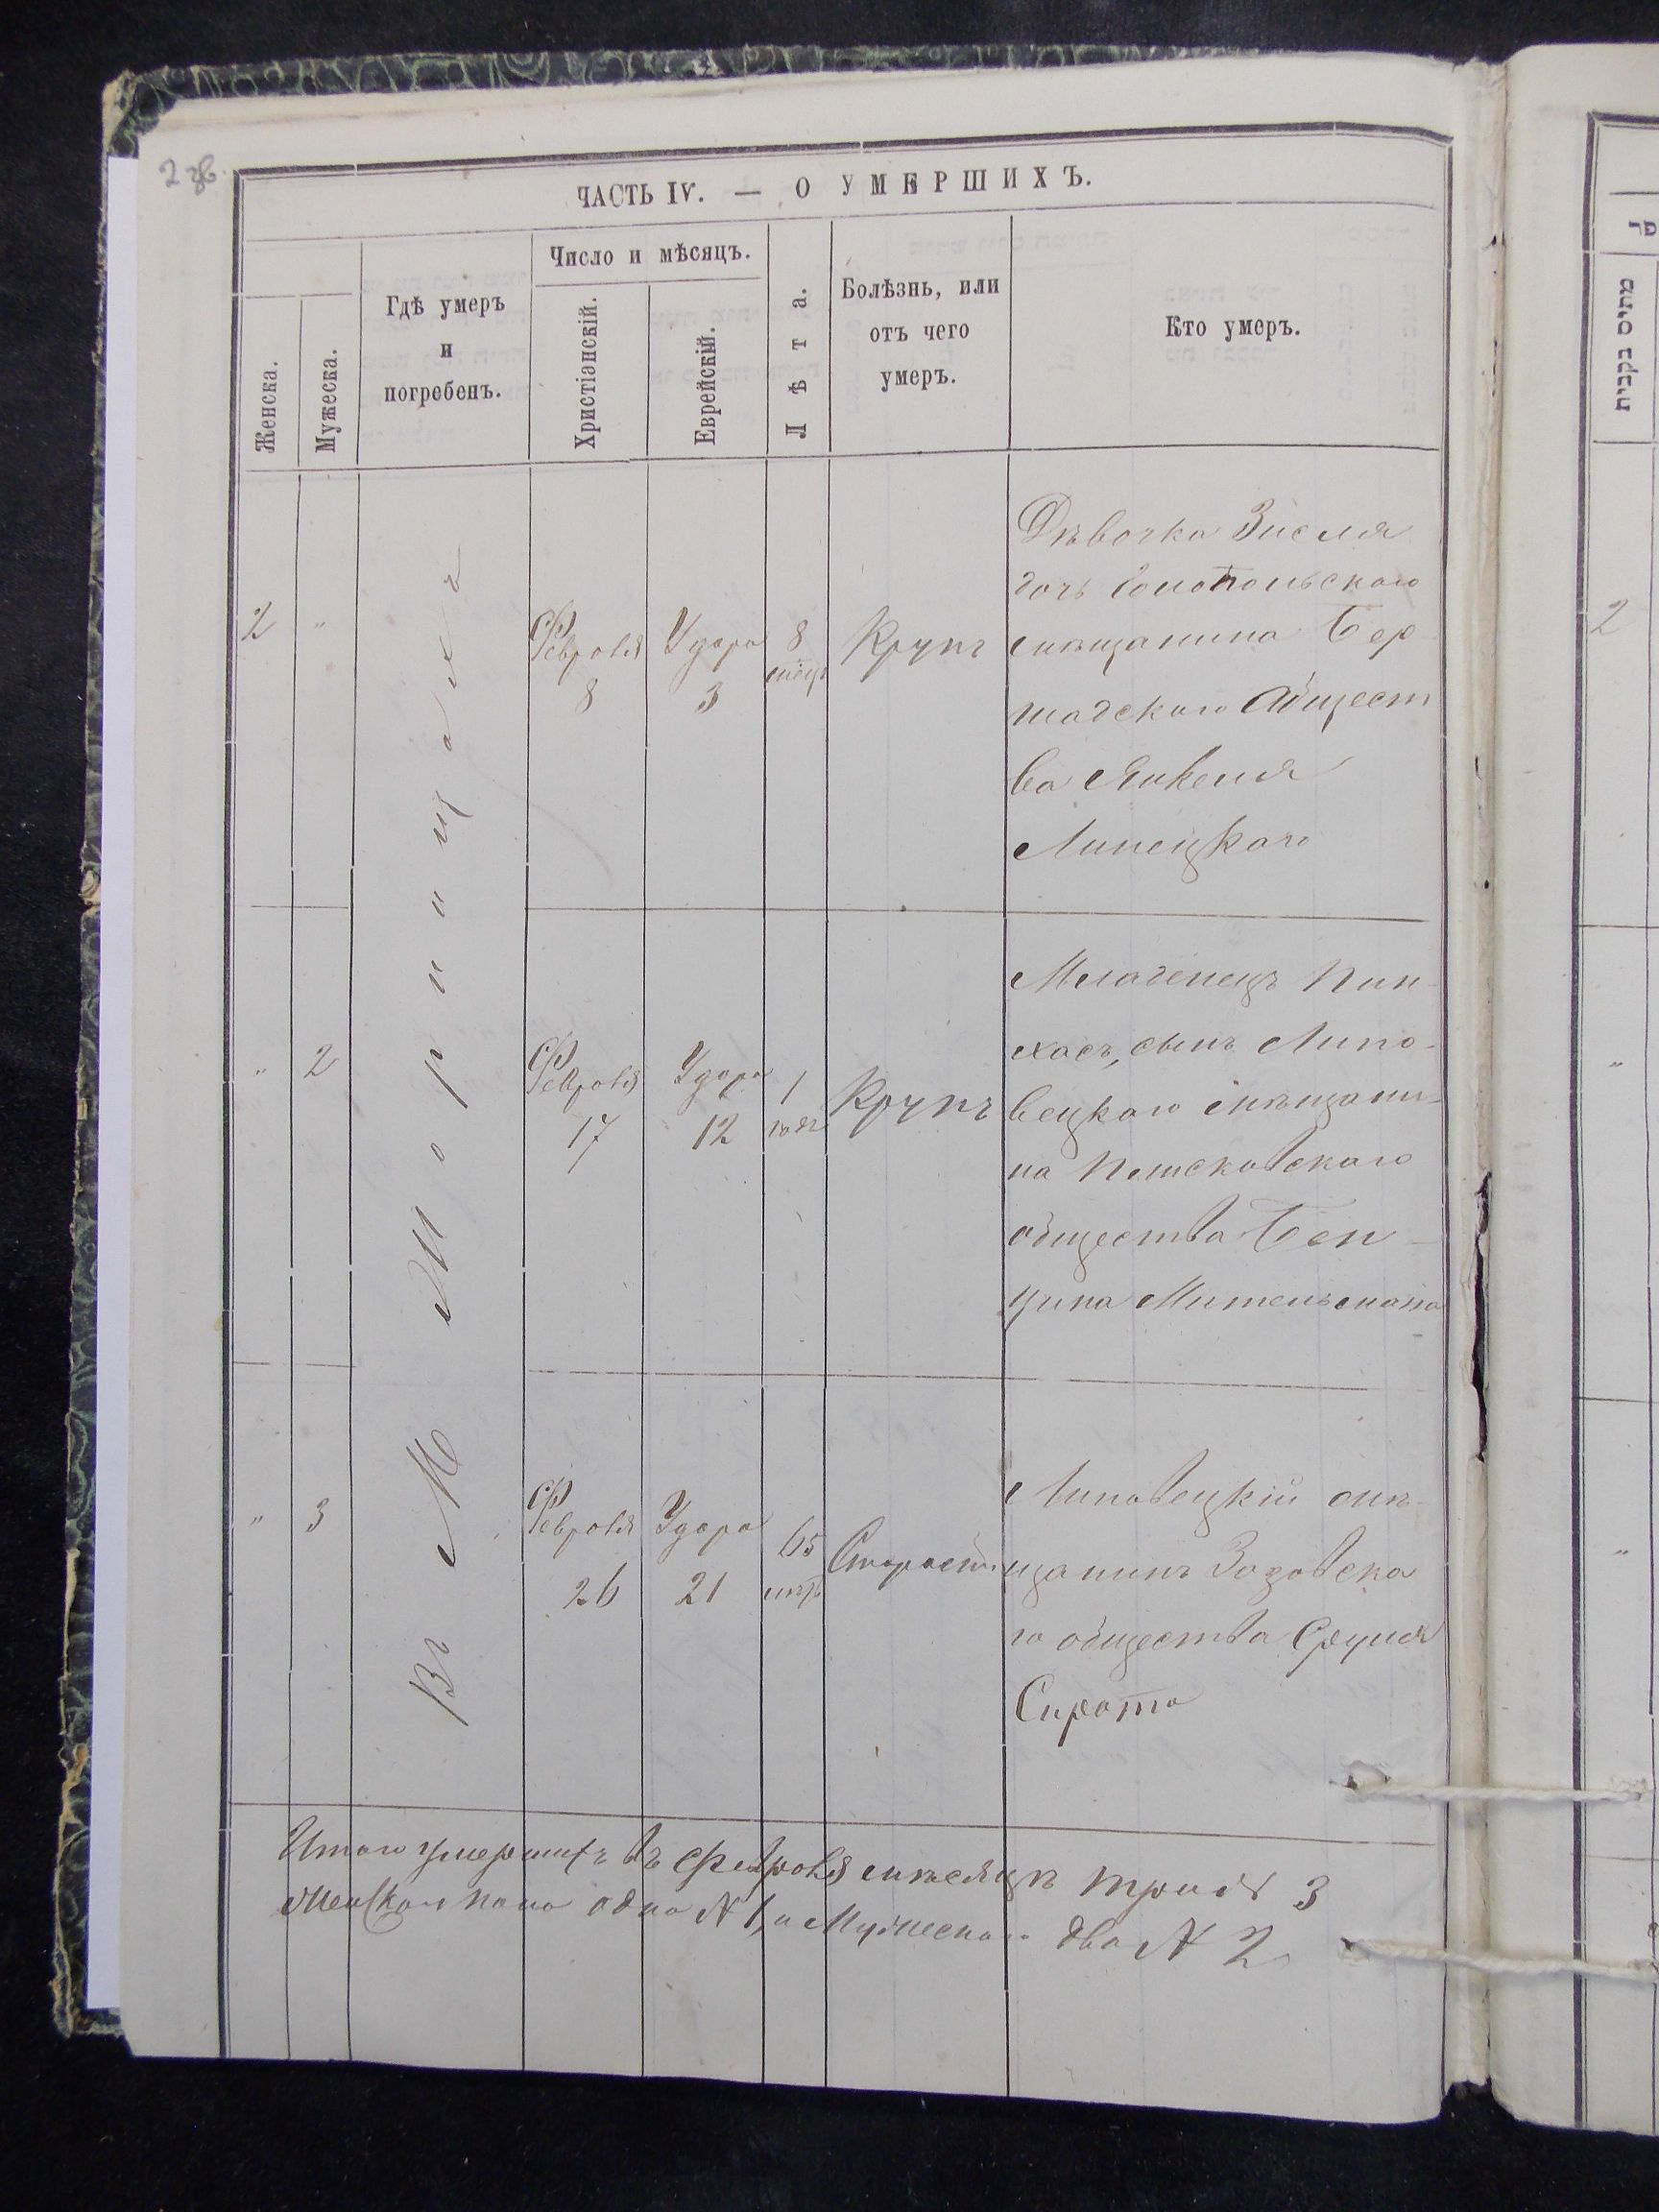 2 зв.
ЧАСТЬ IV. — О УМЕРШИХЪ.
Женска.
Мужеска.
Гдѣ умеръ
и
погребенъ.
Число и мѣсяцъ.
Христіанскій.
Еврейскій.
Лѣта.
Болѣзнь, или
отъ чего
умеръ.
Кто умеръ.
Въ М Моринцахъ
2
"
Февраля
8
Удара
3
8
мѣсц
Крупъ
Дѣвочка Зисля
дочь
мѣщанина Бер
шадского Общест
ва Янкеля
Липецкаго
"
2
Февраля
17
Удара
12
1
годъ
Крупъ
Младенецъ Пин-
хасъ, сынъ Липо-
вецкаго мѣщани-
на
общества Бен-
циона Мительмана
"
3
Февраля
26
Удара
21
65
Старости
Липовецкій мѣ-
щанинъ Зозовска
го общества Сруля
Сирота
Итого умершихъ въ Февраля мѣсяцѣ трое 3
Женскаго пола одна N 1, а Мужескаго два N 2
פר
מתים נקבות
2
"
"